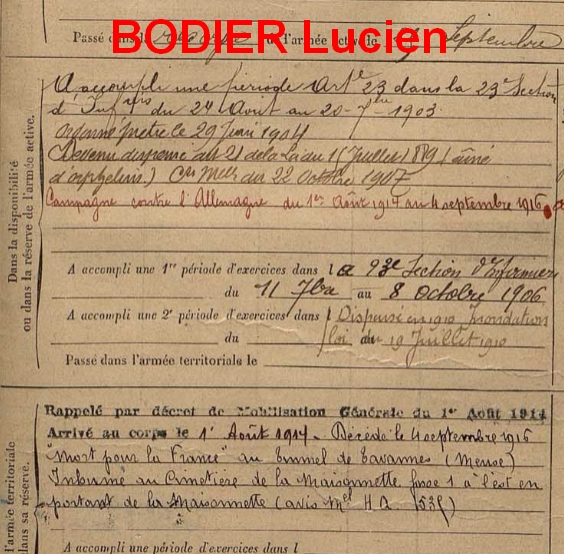 BODIER Lucien
Passé dans la réserve de l'armée active le Septembre
A accompli une période Art 23 dans la 23e Section
d'Infres du 24 Aout au 20-7bre-1903.
Ordonné prêtre le 29 Juin 1904
Devenu dispensé art 21 de la Loi du 15 Juillet 1889 (aîné
d'orphelins.) Ces Mels du 22 Octobre 1907
Campagne contre l'Allemagne du 1er Août 1914 au 4 septembre 1916.
Dans la disponibilité
ou dans la réserve de l'armée active.
A accompli une 1re période d'exercices dans la 93e Section d'Infirmiers
du 11 7bre au 8 Octobre 1906.
A accompli une 2e période d'exercices dans l Dispensé en 1910 Inondation
du loi du 19 Juillet 1910
Passé dans l'armée territoriale le
Rappelé par décret de Mobilisation Générale du 1er Août 1914
Arrivé au corps le 1er Août 1914. Décédé le 4 septembre 1916
"Mort pour la France" au tunnel de Tavannes (Meuse)
Inhumé au Cimetière de la Maisonnette fosse 1 à l'est en
partant de la Maisonnette (avis Mel H A 1535)
l'armée territoriale
dans sa réserve.
A accompli une période d'exercices dans l